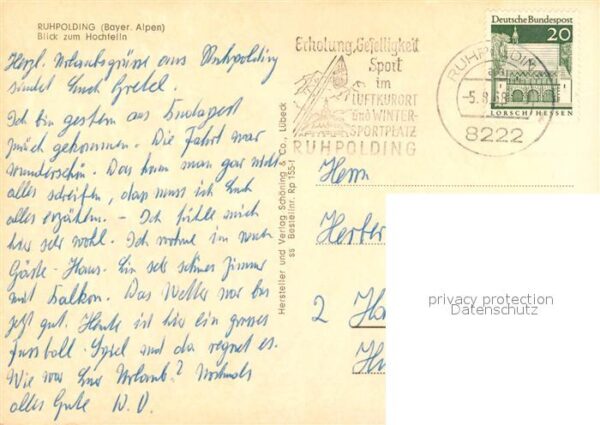 RUHPOLDING (Bayer. Alpen)
Blick zum Hochfelln
Herzl. Urlaubsgrüsse aus Ruhpolding
sendet Euch Gretel.
Ich bin gestern aus Budapest
zurück gekommen. Die Fahrt war
wunderschön. Das kann man gar nicht
alles schreiben, dass muss ich Euch
alles erzählen. – Ich fühle mich
hier sehr wohl. Ich wohne im
Gäste-Haus. Ein sehr schönes Zimmer
mit Balkon. Das Wetter war bis
jetzt gut. Heute ist hier ein grosses
Fussball-Spiel und da regnet es.
Wie war Euer Urlaub? Nochmals
alles Gute
Hersteller und Verlag Schöning & Co., Lübeck
ss Bestellnr. Rp 155-f
Erholung, Geselligkeit
Sport
im
LUFTKURORT
und WINTER-
SPORTPLATZ
RUHPOLDING
RUHPOLDING
-5.8.68
8222
Deutsche Bundespost
20
LORSCH/HESSEN
Herrn
2
privacy protection
Datenschutz